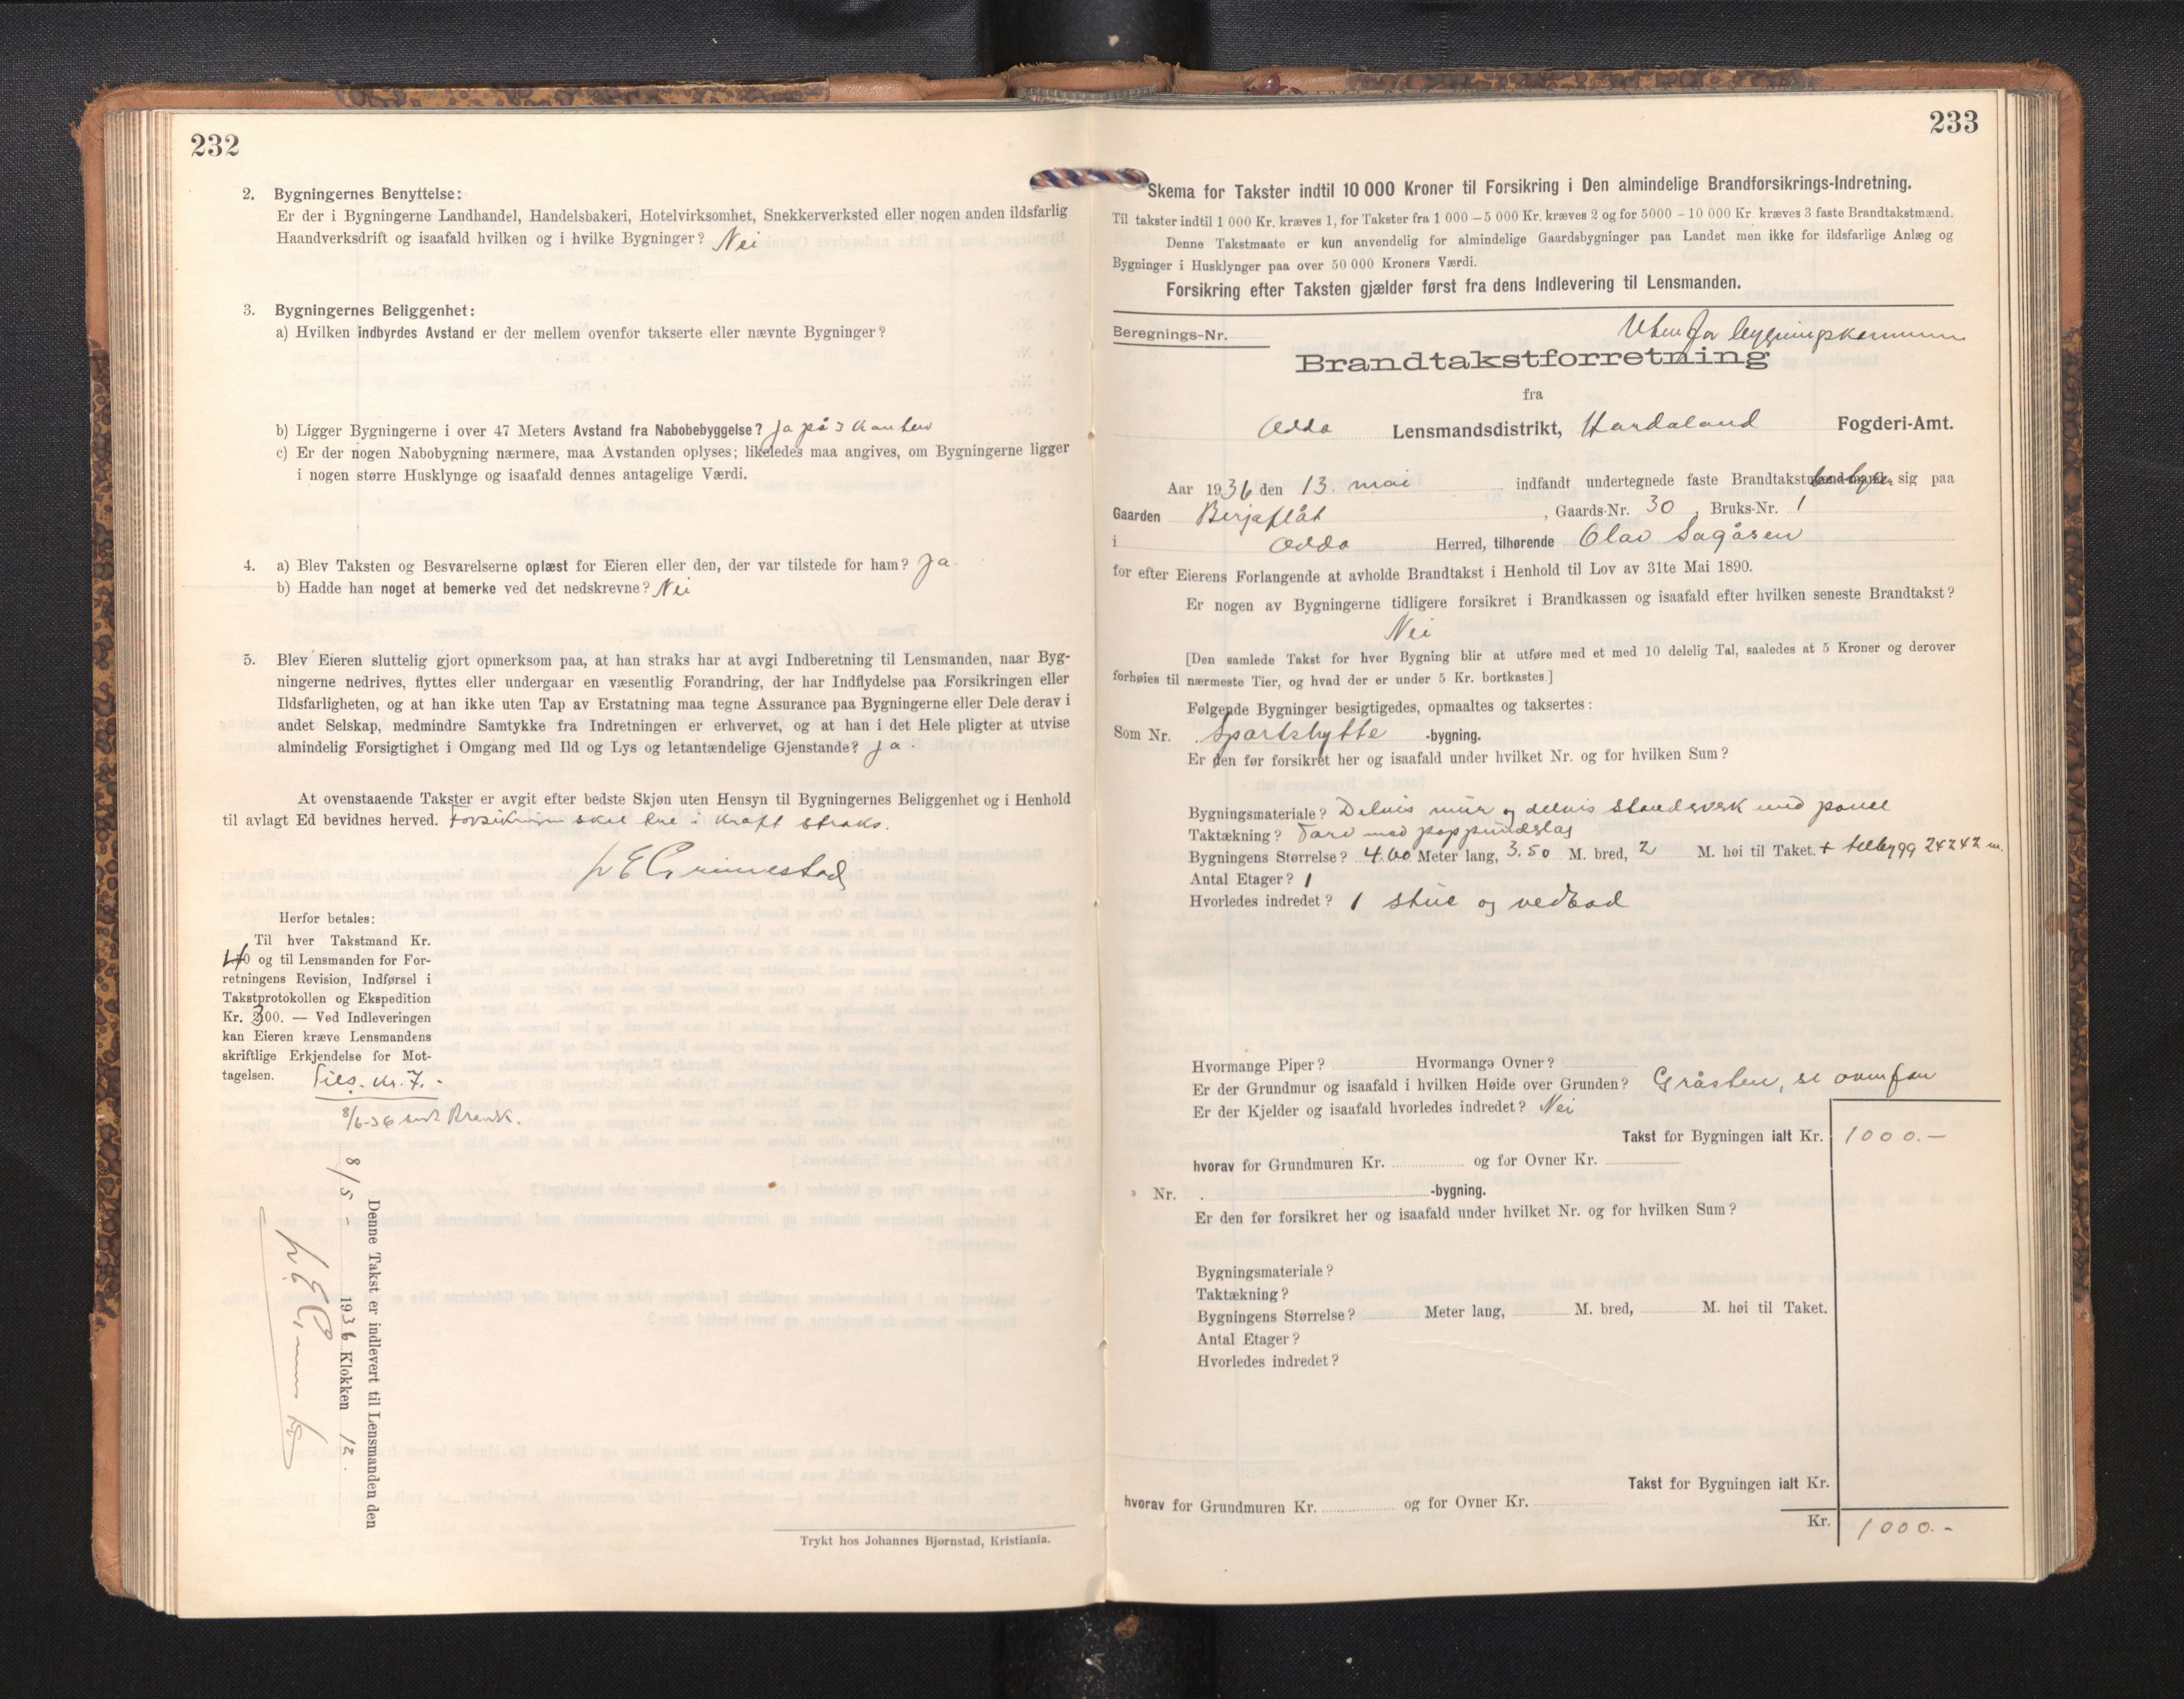 232
2. Bygningernes Benyttelse:
Er der i Bygningerne Landhandel, Handelsbakeri, Hotelvirksomhet, Snekkerverksted eller nogen anden ildsfarlig
Haandverksdrift og isaafald hvilken og i hvilke Bygninger? Nei
3. Bygningernes Beliggenhet:
a) Hvilken indbyrdes Avstand er der mellem ovenfor takserte eller nævnte Bygninger?
b) Ligger Bygningerne i over 47 Meters Avstand fra Nabobebyggelse? Ja på 3 kanter
c) Er der nogen Nabobygning nærmere, maa Avstanden oplyses; likeledes maa angives, om Bygningerne ligger
i nogen større Husklynge og isaafald dennes antagelige Værdi.
4. a) Blev Taksten og Besvarelserne oplæst for Eieren eller den, der var tilstede for ham? Ja.
b) Hadde han noget at bemerke ved det nedskrevne? Nei
5. Blev Eieren sluttelig gjort opmerksom paa, at han straks har at avgi Indberetning til Lensmanden, naar Byg-
ningerne nedrives, flyttes eller undergaar en væsentlig Forandring, der har Indflydelse paa Forsikringen eller
Ildsfarligheten, og at han ikke uten Tap av Erstatning maa tegne Assurance paa Bygningerne eller Dele derav i
andet Selskap, medmindre Samtykke fra Indretningen er erhvervet, og at han i det Hele pligter at utvise
almindelig Forsigtighet i Omgang med Ild og Lys og letantændelige Gjenstande? Ja.
At ovenstaaende Takster er avgit efter bedste Skjøn uten Hensyn til Bygningernes Beliggenhet og i Henhold
til avlagt Ed bevidnes herved. Forsikringen skal tre i kraft straks.
Grimestad
Herfor betales:
Til hver Takstmand Kr.
og til Lensmanden for For-
retningens Revision, Indførsel i
Takstprotokollen og Ekspedition
Kr. 300. — Ved Indleveringen
kan Eieren kræve Lensmandens
skriftlige Erkjendelse for Mot-
tagelsen. Tils. kr. 7.-
8/6-36 sendt Brandk.
Denne Takst er indlevert til Lensmanden den
8/5 - 1936 Klokken 12.
Trykt hos Johannes Bjørnstad, Kristiania.
233
Skema for Takster indtil 10 000 Kroner til Forsikring i Den almindelige Brandforsikrings-Indretning.
Til takster indtil 1 000 Kr. kræves 1, for Takster fra 1 000 – 5 000 Kr. kræves 2 og for 5000 – 10 000 Kr. kræves 3 faste Brandtakstmænd.
Denne Takstmaate er kun anvendelig for almindelige Gaardsbygninger paa Landet men ikke for ildsfarlige Anlæg og
Bygninger i Husklynger paa over 50 000 Kroners Værdi.
Forsikring efter Taksten gjælder først fra dens Indlevering til Lensmanden.
Beregnings-Nr.
Utenfor bygningskommune
Brandtakstforretning
fra
Odda Lensmandsdistrikt, Hordaland Fogderi-Amt.
Aar 1936 den 13. mai indfandt undertegnede faste Brandtakst sig paa
Gaarden Berjaflåt, Gaards-Nr. 30, Bruks-Nr. 1
i Odda Herred, tilhørende Olav Sagåsen
for efter Eierens Forlangende at avholde Brandtakst i Henhold til Lov av 31te Mai 1890.
Er nogen av Bygningerne tidligere forsikret i Brandkassen og isaafald efter hvilken seneste Brandtakst?
Nei
[Den samlede Takst for hver Bygning blir at utføre med et med 10 delelig Tal, saaledes at 5 Kroner og derover
forhøies til nærmeste Tier, og hvad der er under 5 Kr. bortkastes.]
Følgende Bygninger besigtigedes, opmaaltes og taksertes:
Som Nr. Sportshytte -bygning.
Er den før forsikret her og isaafald under hvilket Nr. og for hvilken Sum?
Bygningsmateriale? Delvis mur og delvis standsverk med panel
Taktækning? Torv med pappundslag
Bygningens Størrelse? 4.00 Meter lang, 3.50 M. bred, 2 M. høi til Taket. + tilbygg 2x2x2 m.
Antal Etager? 1
Hvorledes indredet? 1 stue og vedbod
Hvormange Piper? Hvormange Ovner?
Er der Grundmur og isaafald i hvilken Høide over Grunden? Gråsten, se ovenfor
Er der Kjelder og isaafald hvorledes indredet? Nei
Takst før Bygningen ialt Kr. 1000.-
hvorav for Grundmuren Kr. og for Ovner Kr.
» Nr. -bygning.
Er den før forsikret her og isaafald under hvilket Nr. og for hvilken Sum?
Bygningsmateriale?
Taktækning?
Bygningens Størrelse? Meter lang, M. bred, M. høi til Taket.
Antal Etager?
Hvorledes indredet?
Takst for Bygningen ialt Kr.
hvorav for Grundmuren Kr. og for Ovner Kr.
Kr. 1000.-